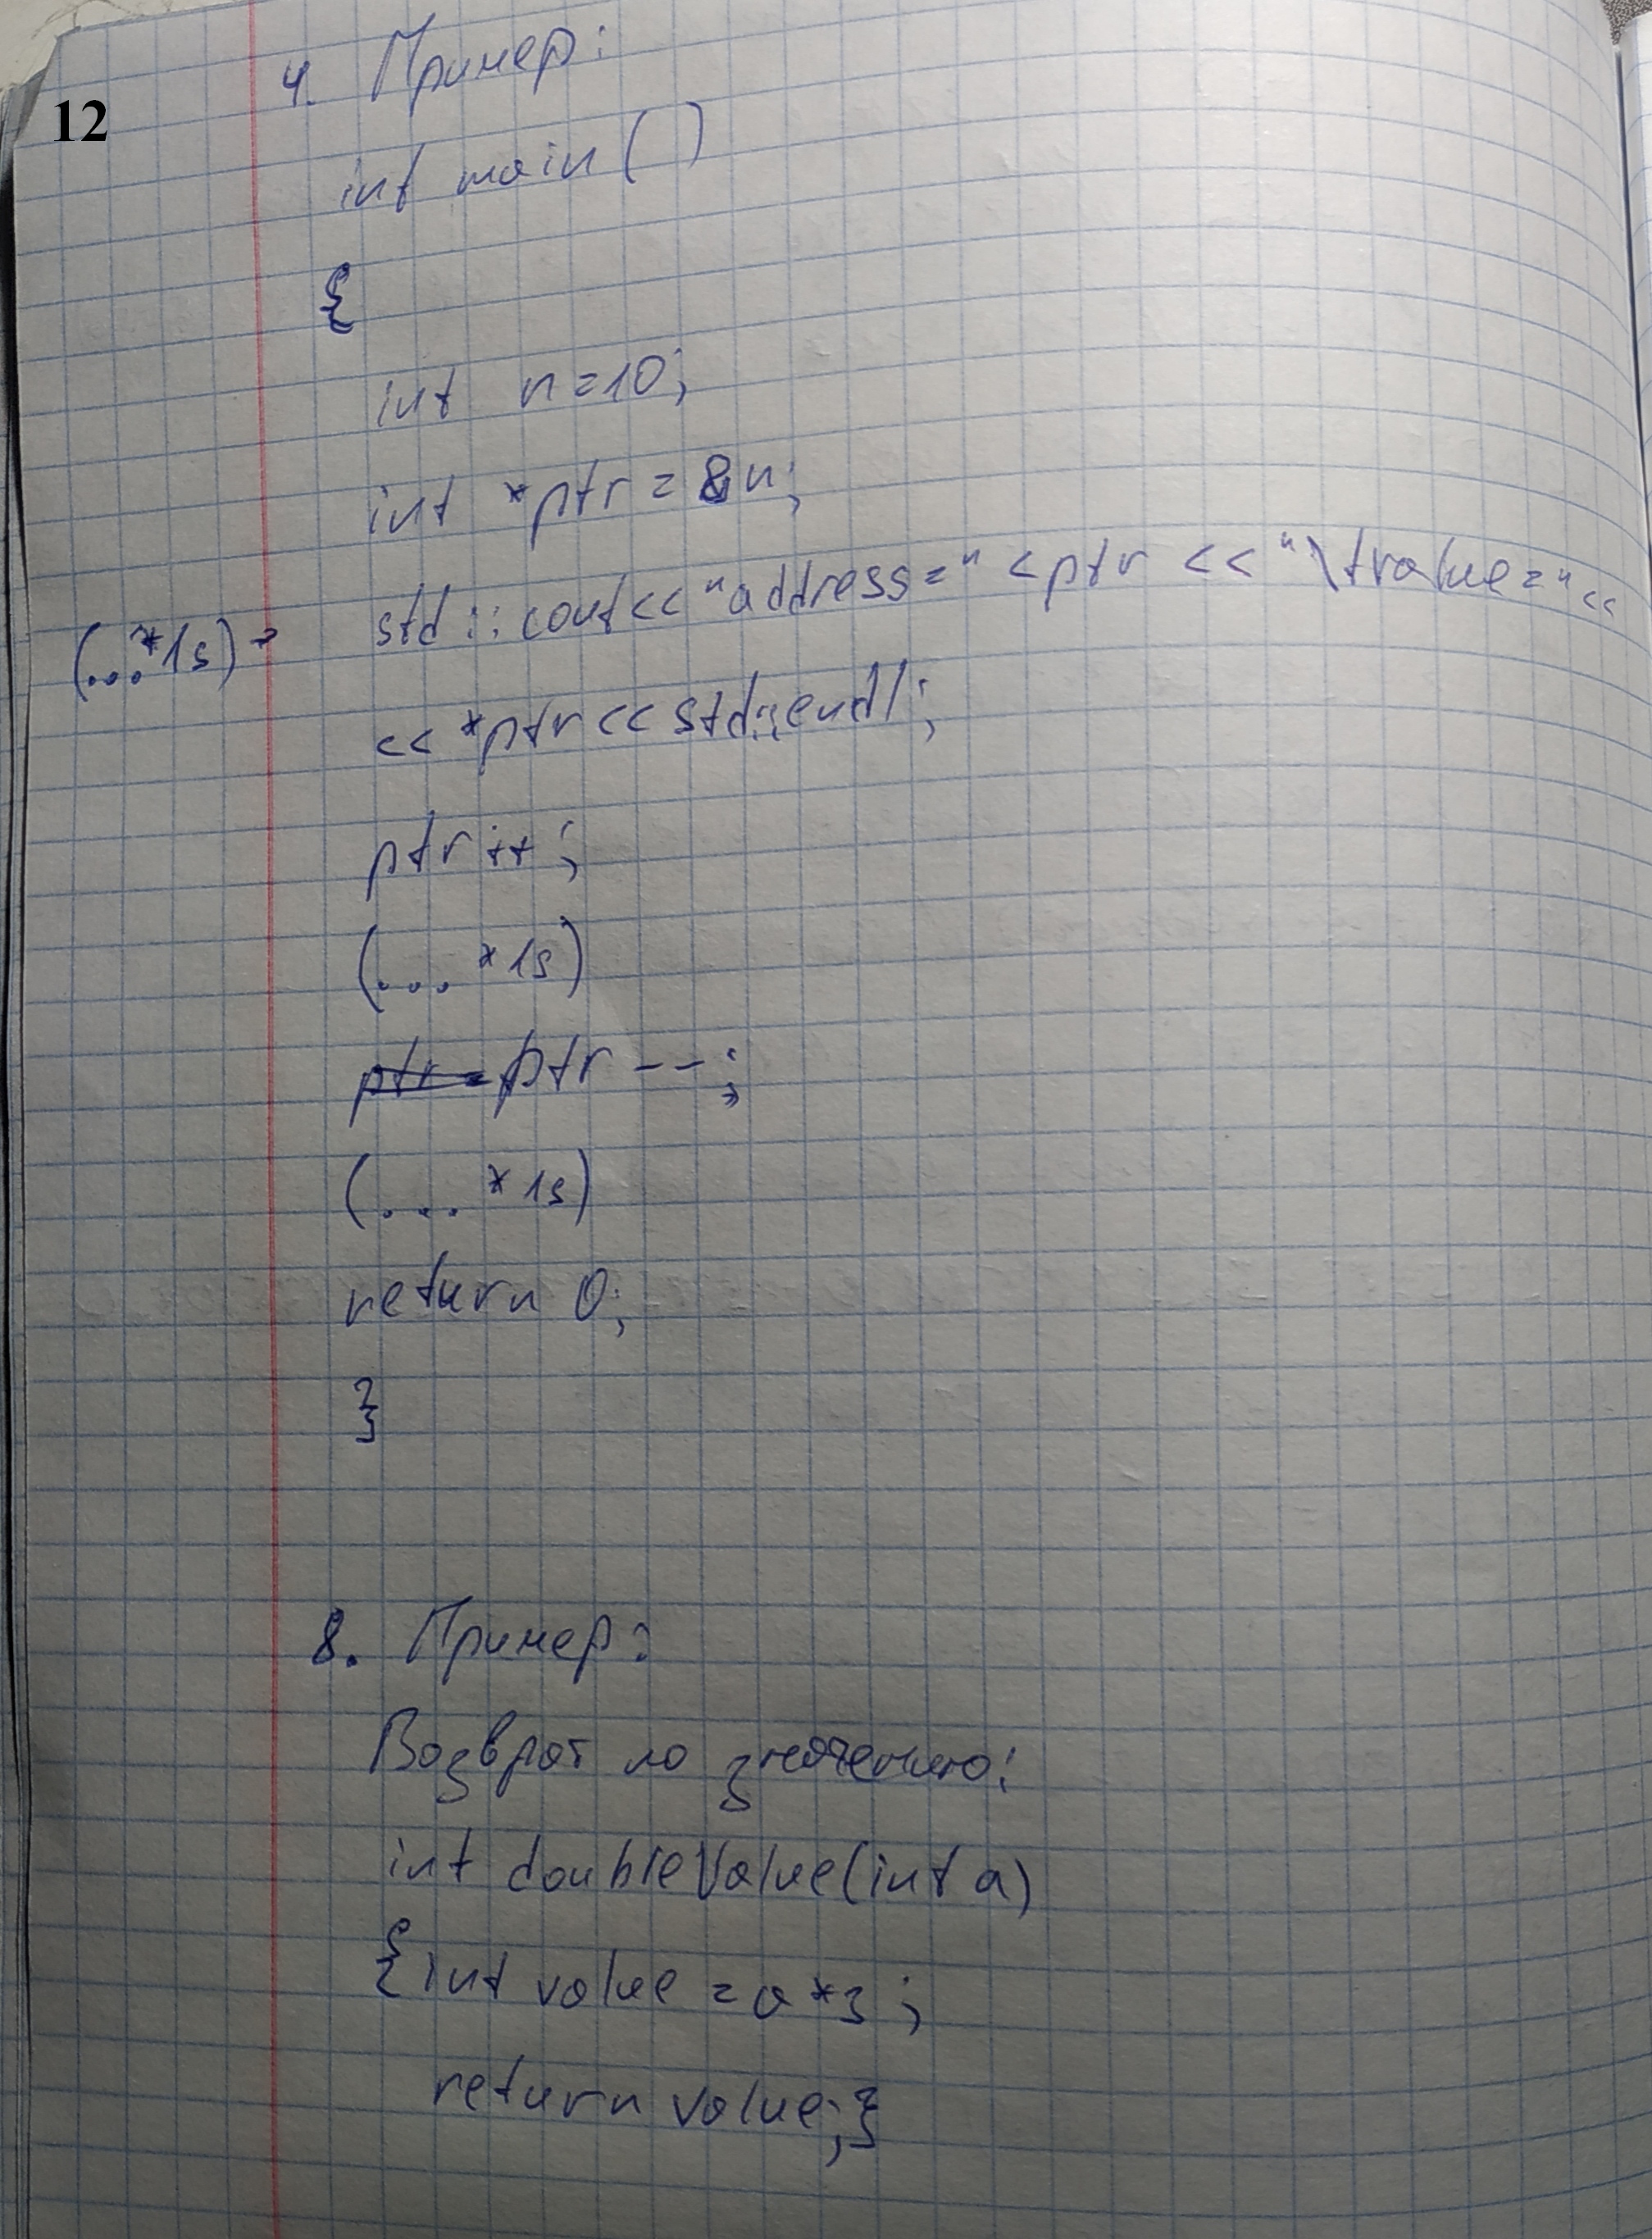 12
4. Пример:
int main()
{
int n=10;
int *ptr = &n;
std::cout<<"address="<ptr <<"\tvalue="<<
(...*1s)=
<< *ptr << std::endl;
ptr++;
(... *1s)
ptr= ptr--;
(... *1s)
return 0;
}
8. Пример:
Возврат по значению:
int doubleValue(int a)
{int value = a*3;
return value;}